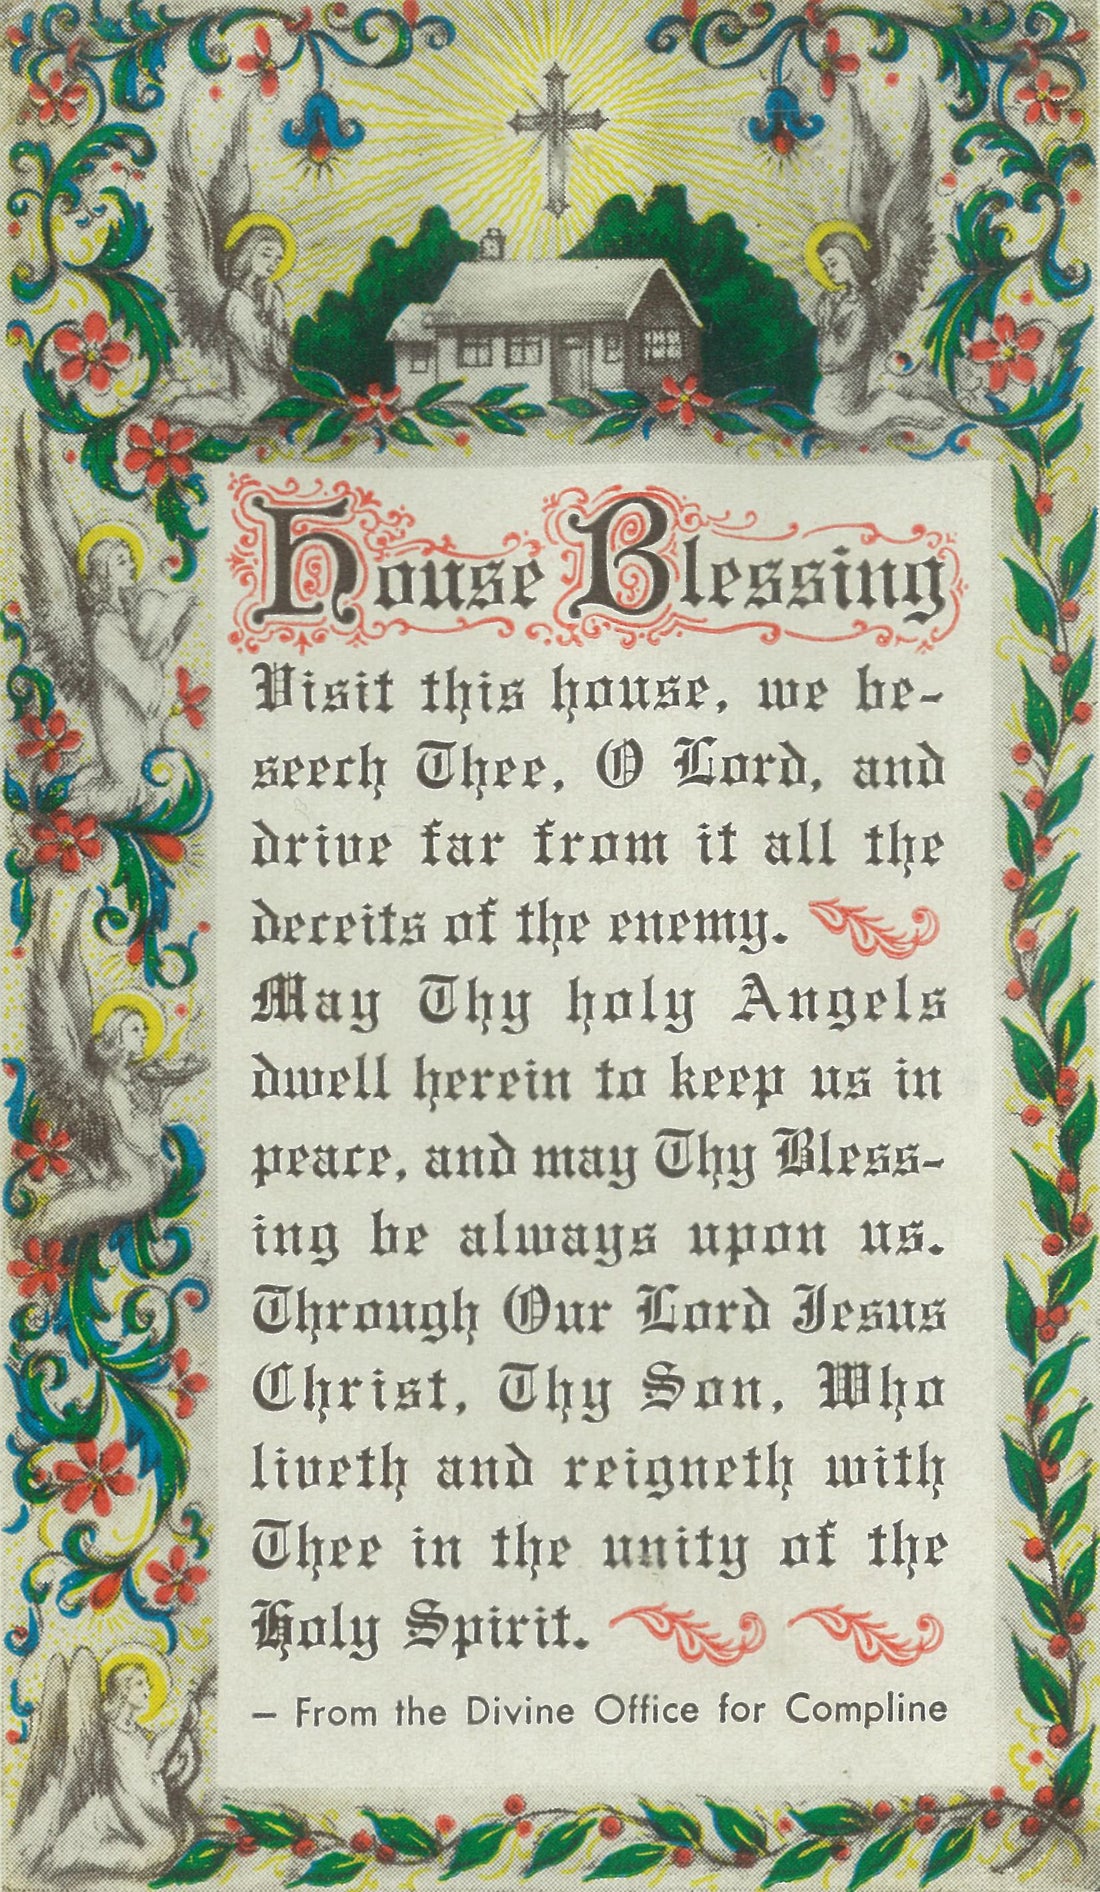 House Blessing
Visit this house, we be-
seech Thee, O Lord, and
drive far from it all the
deceits of the enemy.
May Thy holy Angels
dwell herein to keep us in
peace, and may Thy Bless-
ing be always upon us.
Through Our Lord Jesus
Christ, Thy Son, Who
liveth and reigneth with
Thee in the unity of the
Holy Spirit.
– From the Divine Office for Compline